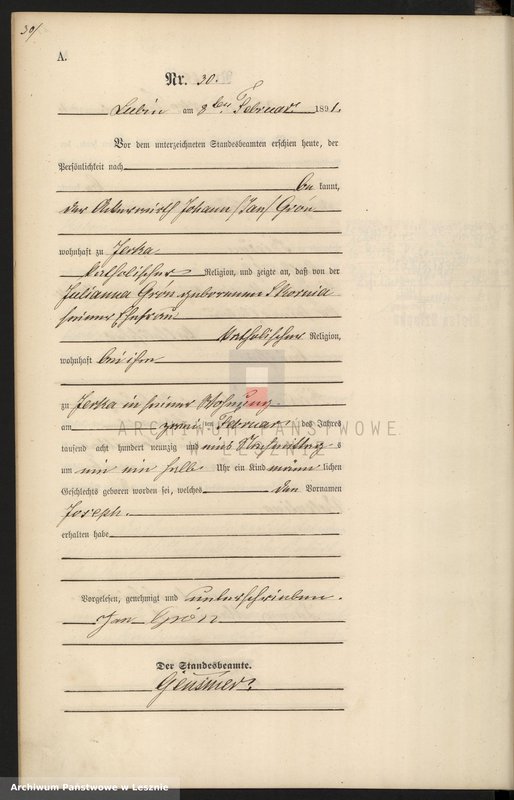 30/
A.
Nr. 30.
Lubin am 8ten Februar 1891.
Vor dem unterzeichneten Standesbeamten erschien heute, der
Persönlichkeit nach
be kannt,
der Ackerwirth Johann /Jan/ Gron
wohnhaft zu Jerka
katholischer Religion, und zeigte an, daß von der
Julianna Gron geborenen Skornia
seiner Ehefrau
katholischer Religion,
wohnhaft bei ihm
zu Jerka in seiner Wohnung
am zwei ten Februar des Jahres
tausend acht hundert neunzig und eins Nachmittag s
um ein ein halb Uhr ein Kind männ lichen
Geschlechts geboren worden sei, welches den Vornamen
Joseph.
erhalten habe
Vorgelesen, genehmigt und unterschrieben.
Jan Gron
Der Standesbeamte.
ARCHIWUM PAŃSTWOWE
LESZNIE
Archiwum Państwowe w Lesznie